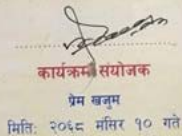 कार्यक्रम संयोजक
प्रेम खजुम
मिति: २०६८ मंसिर १० गते